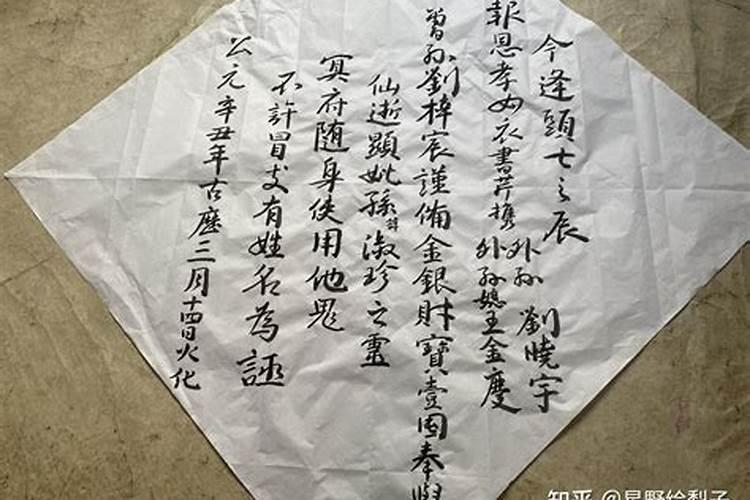 今逢頭七之辰
報恩孝女衣書芹携
外孙 劉曉宇
外孙媳王金慶
曾孙劉梓宸謹備金銀財寶壹囤奉與
仙逝顯妣孫諱淑珍之靈
冥府随身使用他鬼
不許冒支有姓名為證
公元辛丑年古歷三月十四日火化
知乎 @星野绘梨子